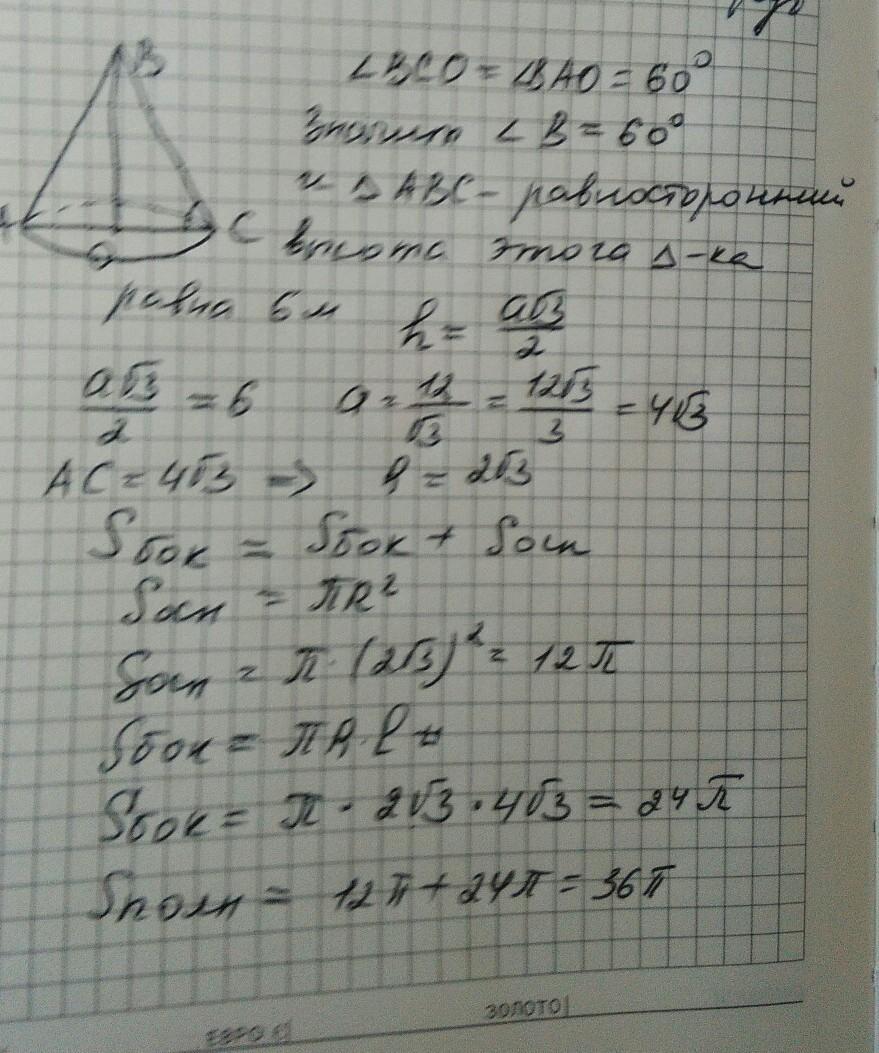 B
A
C
O
∠BCO = ∠BAO = 60°
Значит ∠B = 60°
и △ABC - равносторонний
высота этога △-ка
равна 6 м h = a√3/2
a√3/2 = 6 a = 12/√3 = 12√3/3 = 4√3
AC = 4√3 => R = 2√3
Sбок = Sбок + Sосн
Sосн = πR²
Sосн = π·(2√3)² = 12π
Sбок = πR·l
Sбок = π · 2√3 · 4√3 = 24π
Sполн = 12π + 24π = 36π
ЕВРО
ЗОЛОТО